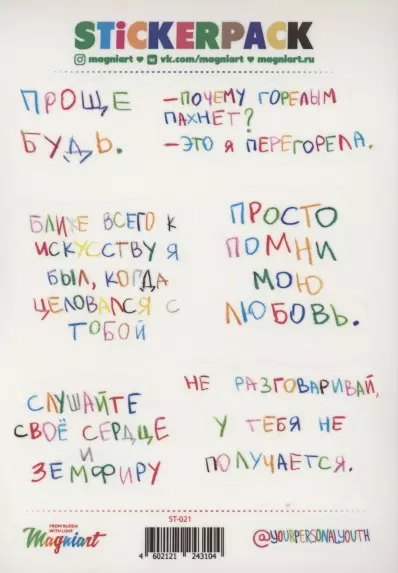 STiCKERPACK
magniart ♥ vk.com/magniart ♥ magniart.ru
ПРОЩЕ
БУДЬ.
—ПОЧЕМУ ГОРЕЛЫМ
ПАХНЕТ?
—ЭТО Я ПЕРЕГОРЕЛА.
БЛИЖЕ ВСЕГО К
ИСКУССТВУ Я
БЫЛ, КОГДА
ЦЕЛОВАЛСЯ С
ТОБОЙ
ПРОСТО
ПОМНИ
МОЮ
ЛЮБОВЬ.
СЛУШАЙТЕ
СВОЁ СЕРДЦЕ
И
ЗЕМФИРУ
НЕ РАЗГОВАРИВАЙ,
У ТЕБЯ НЕ
ПОЛУЧАЕТСЯ.
FROM RUSSIA
WITH LOVE
Magniart
ST-021
4 602121 243104
@YOURPERSONALYOUTH